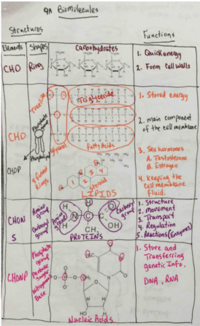 9A BioMolecules
Structures
Functions
Elements
Shapes
Carbohydrates
CHO
Rings
1. Quick energy
2. Form Cell Walls
Triglyceride
1. Stored energy
2. main component
of the cell membrane
CHO
Fatty Acids
3. Sex hormones
A. Testosterone
B. Estrogen
CHOP
4 fused
Rings
4. Keeping the
cell membrane
fluid.
LIPIDS
CHON
S
Amino
group
Carboxyl
group
PROTEINS
1. Structure
2. Movement
3. Transport
4. Regulation
5. Reactions (Enzymes)
CHONP
Phosphate
group
Pentose
Sugar
Nitrogenous
Base
Nucleic Acids
1. Store and
Transferring
genetic Info.
DNA, RNA